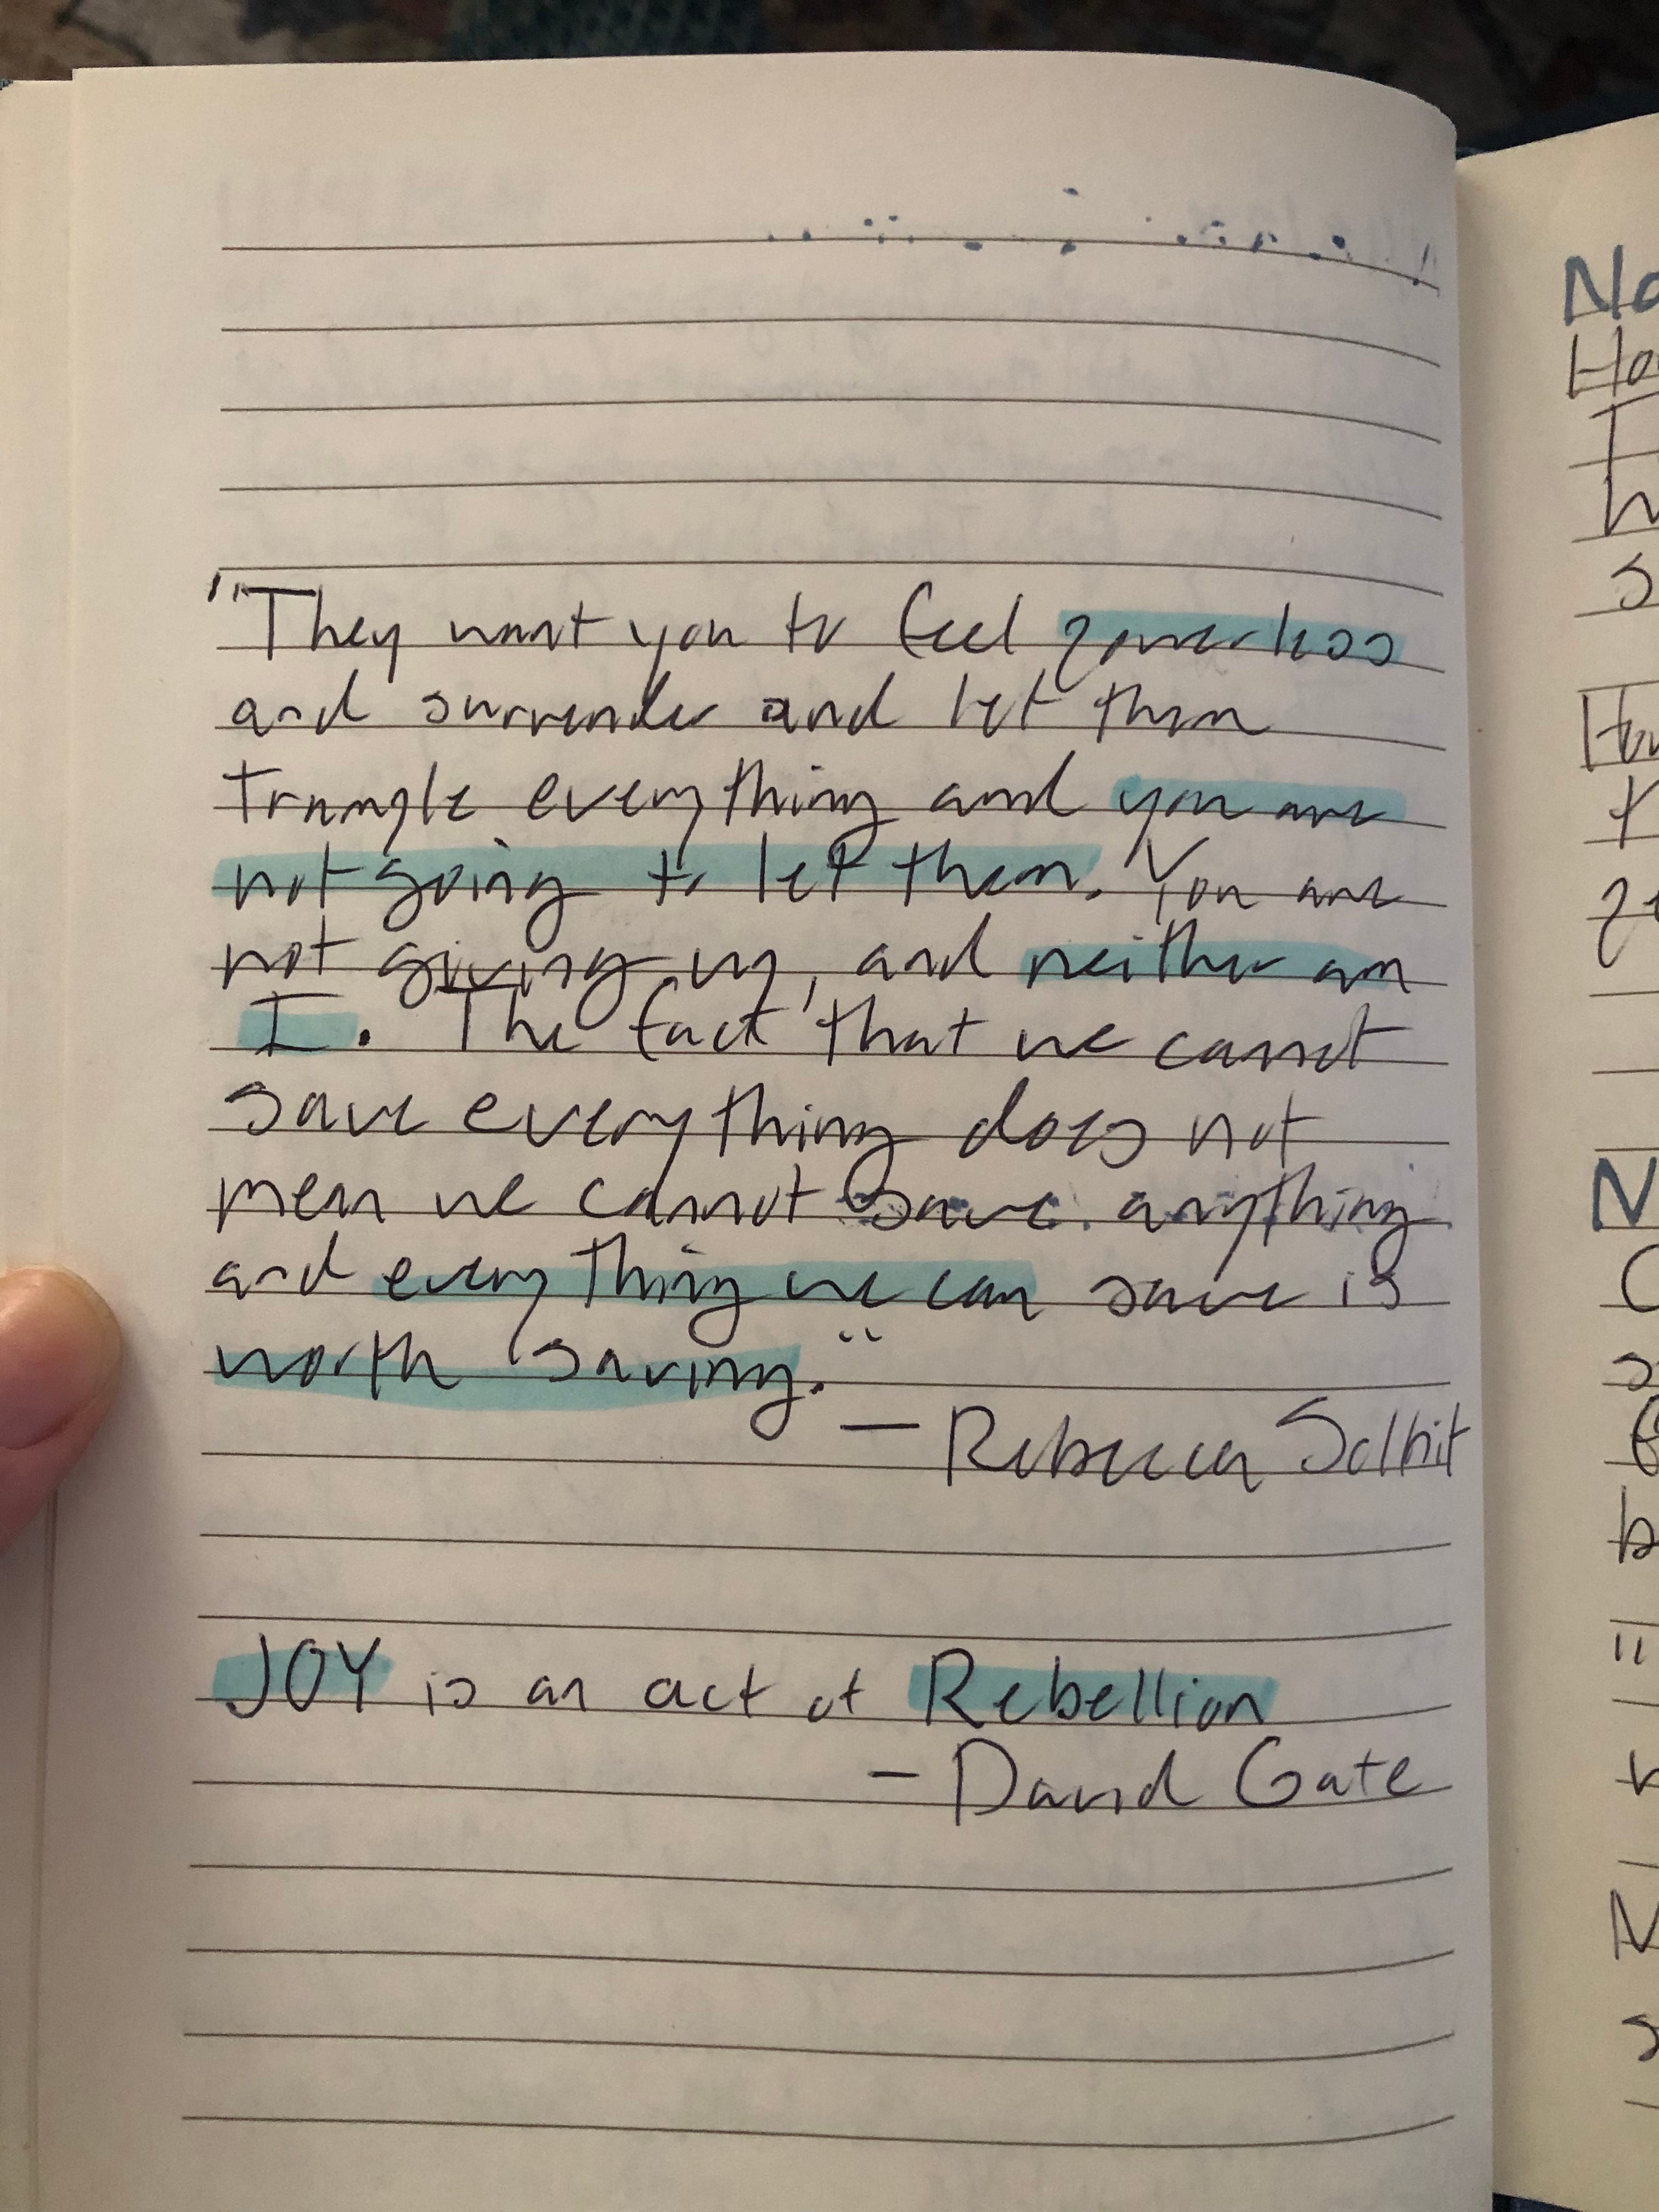 "They want you to feel powerless
and surrender and let them
trample everything and you are
not going to let them. You are
not giving up, and neither am
I. The fact that we cannot
save everything does not
mean we cannot save anything
and everything we can save is
worth saving."
— Rebecca Solnit
JOY is an act of Rebellion
- David Gate